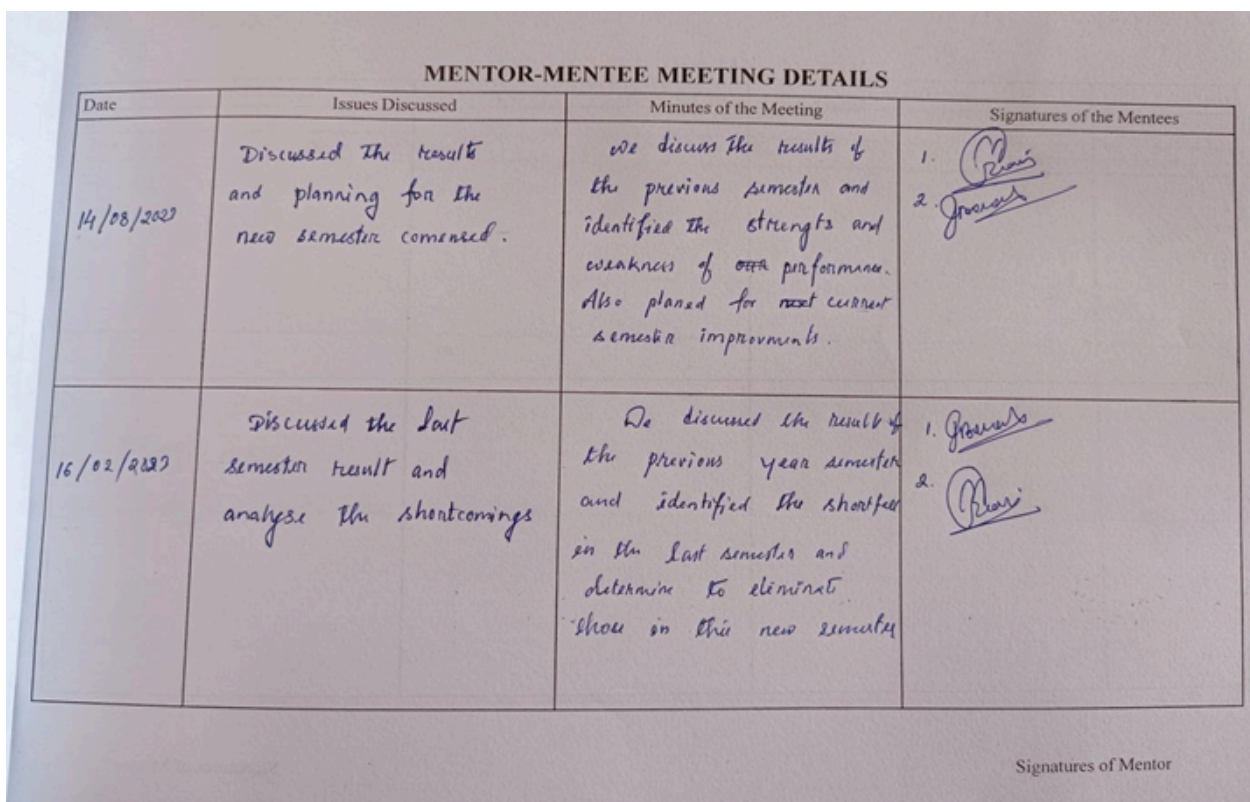 MENTOR-MENTEE MEETING DETAILS
Date
Issues Discussed
Minutes of the Meeting
Signatures of the Mentees
14/08/2023
Discussed the results
and planning for the
new semester comensed.
we discuss the results of
the previous semester and
identified the strengts and
weakness of our performance.
Also planed for next current
semester improvments.
1.
2.
16/02/2023
Discussed the last
semester result and
analyse the shortcomings
We discussed the result of
the previous year semester
and identified the
in the last semester and
determine to eliminate
those in this new semester
1.
2.
Signatures of Mentor